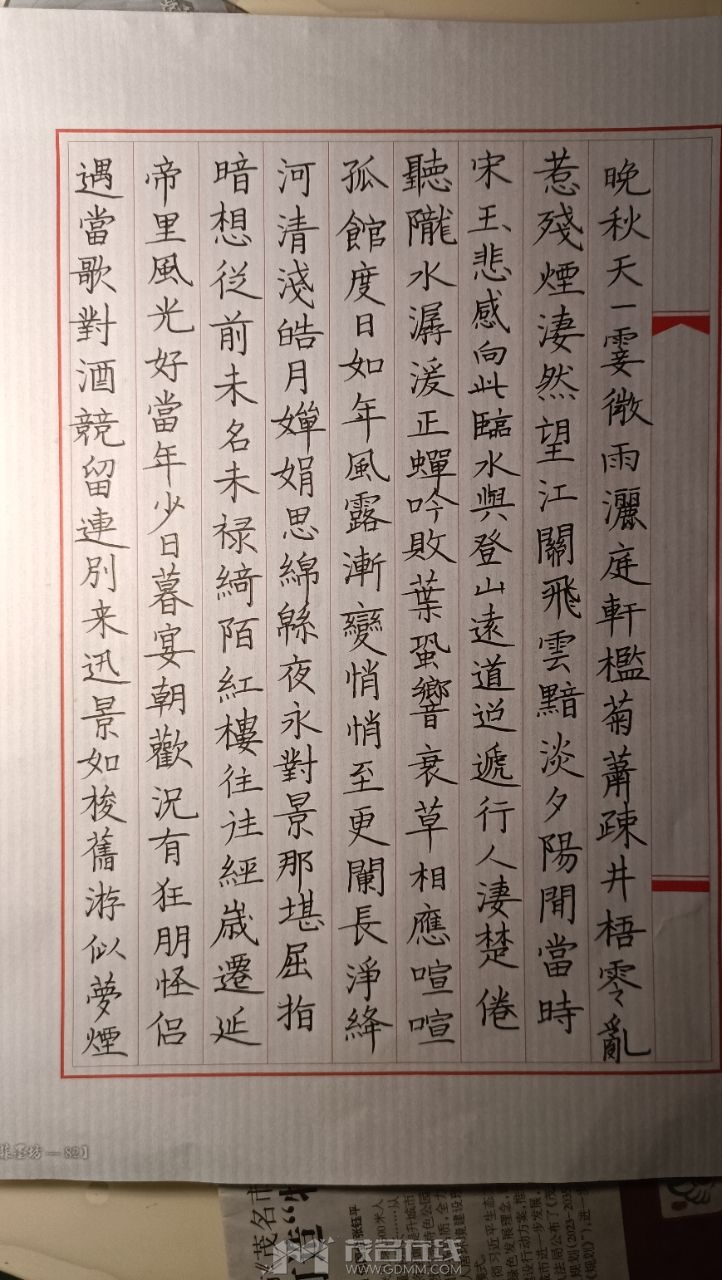 晚秋天一霎微雨灑庭軒檻菊蕭疎井梧零亂
惹殘煙淒然望江關飛雲黯淡夕陽閒當時
宋玉悲感向此臨水與登山遠道迢遞行人淒楚倦
聽隴水潺湲正蟬吟敗葉蛩響衰草相應喧喧
孤館度日如年風露漸變悄悄至更闌長淨絳
河清淺皓月嬋娟思綿緜夜永對景那堪屈指
暗想從前未名未祿綺陌紅樓往往經歲遷延
帝里風光好當年少日暮宴朝歡況有狂朋怪侶
遇當歌對酒競留連別来迅景如梭舊游似夢煙
墨坊 — 82】
《茂名市
茂名在线
WWW.GDMM.COM